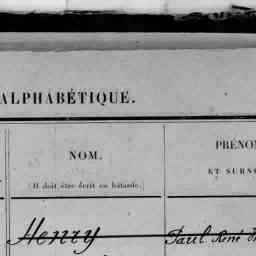 ALPHABÉTIQUE.
NOM.
(Il doit être écrit en bâtarde.)
PRÉNO
ET SURN
Henry
Paul René